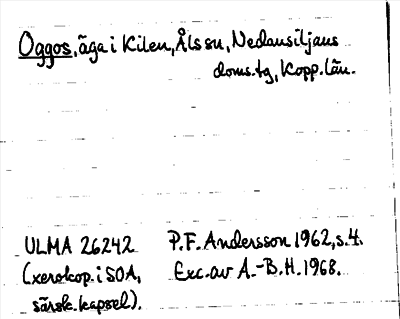 Oggos, äga i Kilen, Åls sn, Nedansiljans
doms.tg, Kopp. län.
ULMA 26242 P.F. Andersson 1962, s. 4.
(xerokop. i SOA, Exc. av A.-B. H. 1968.
särsk. kapsel).